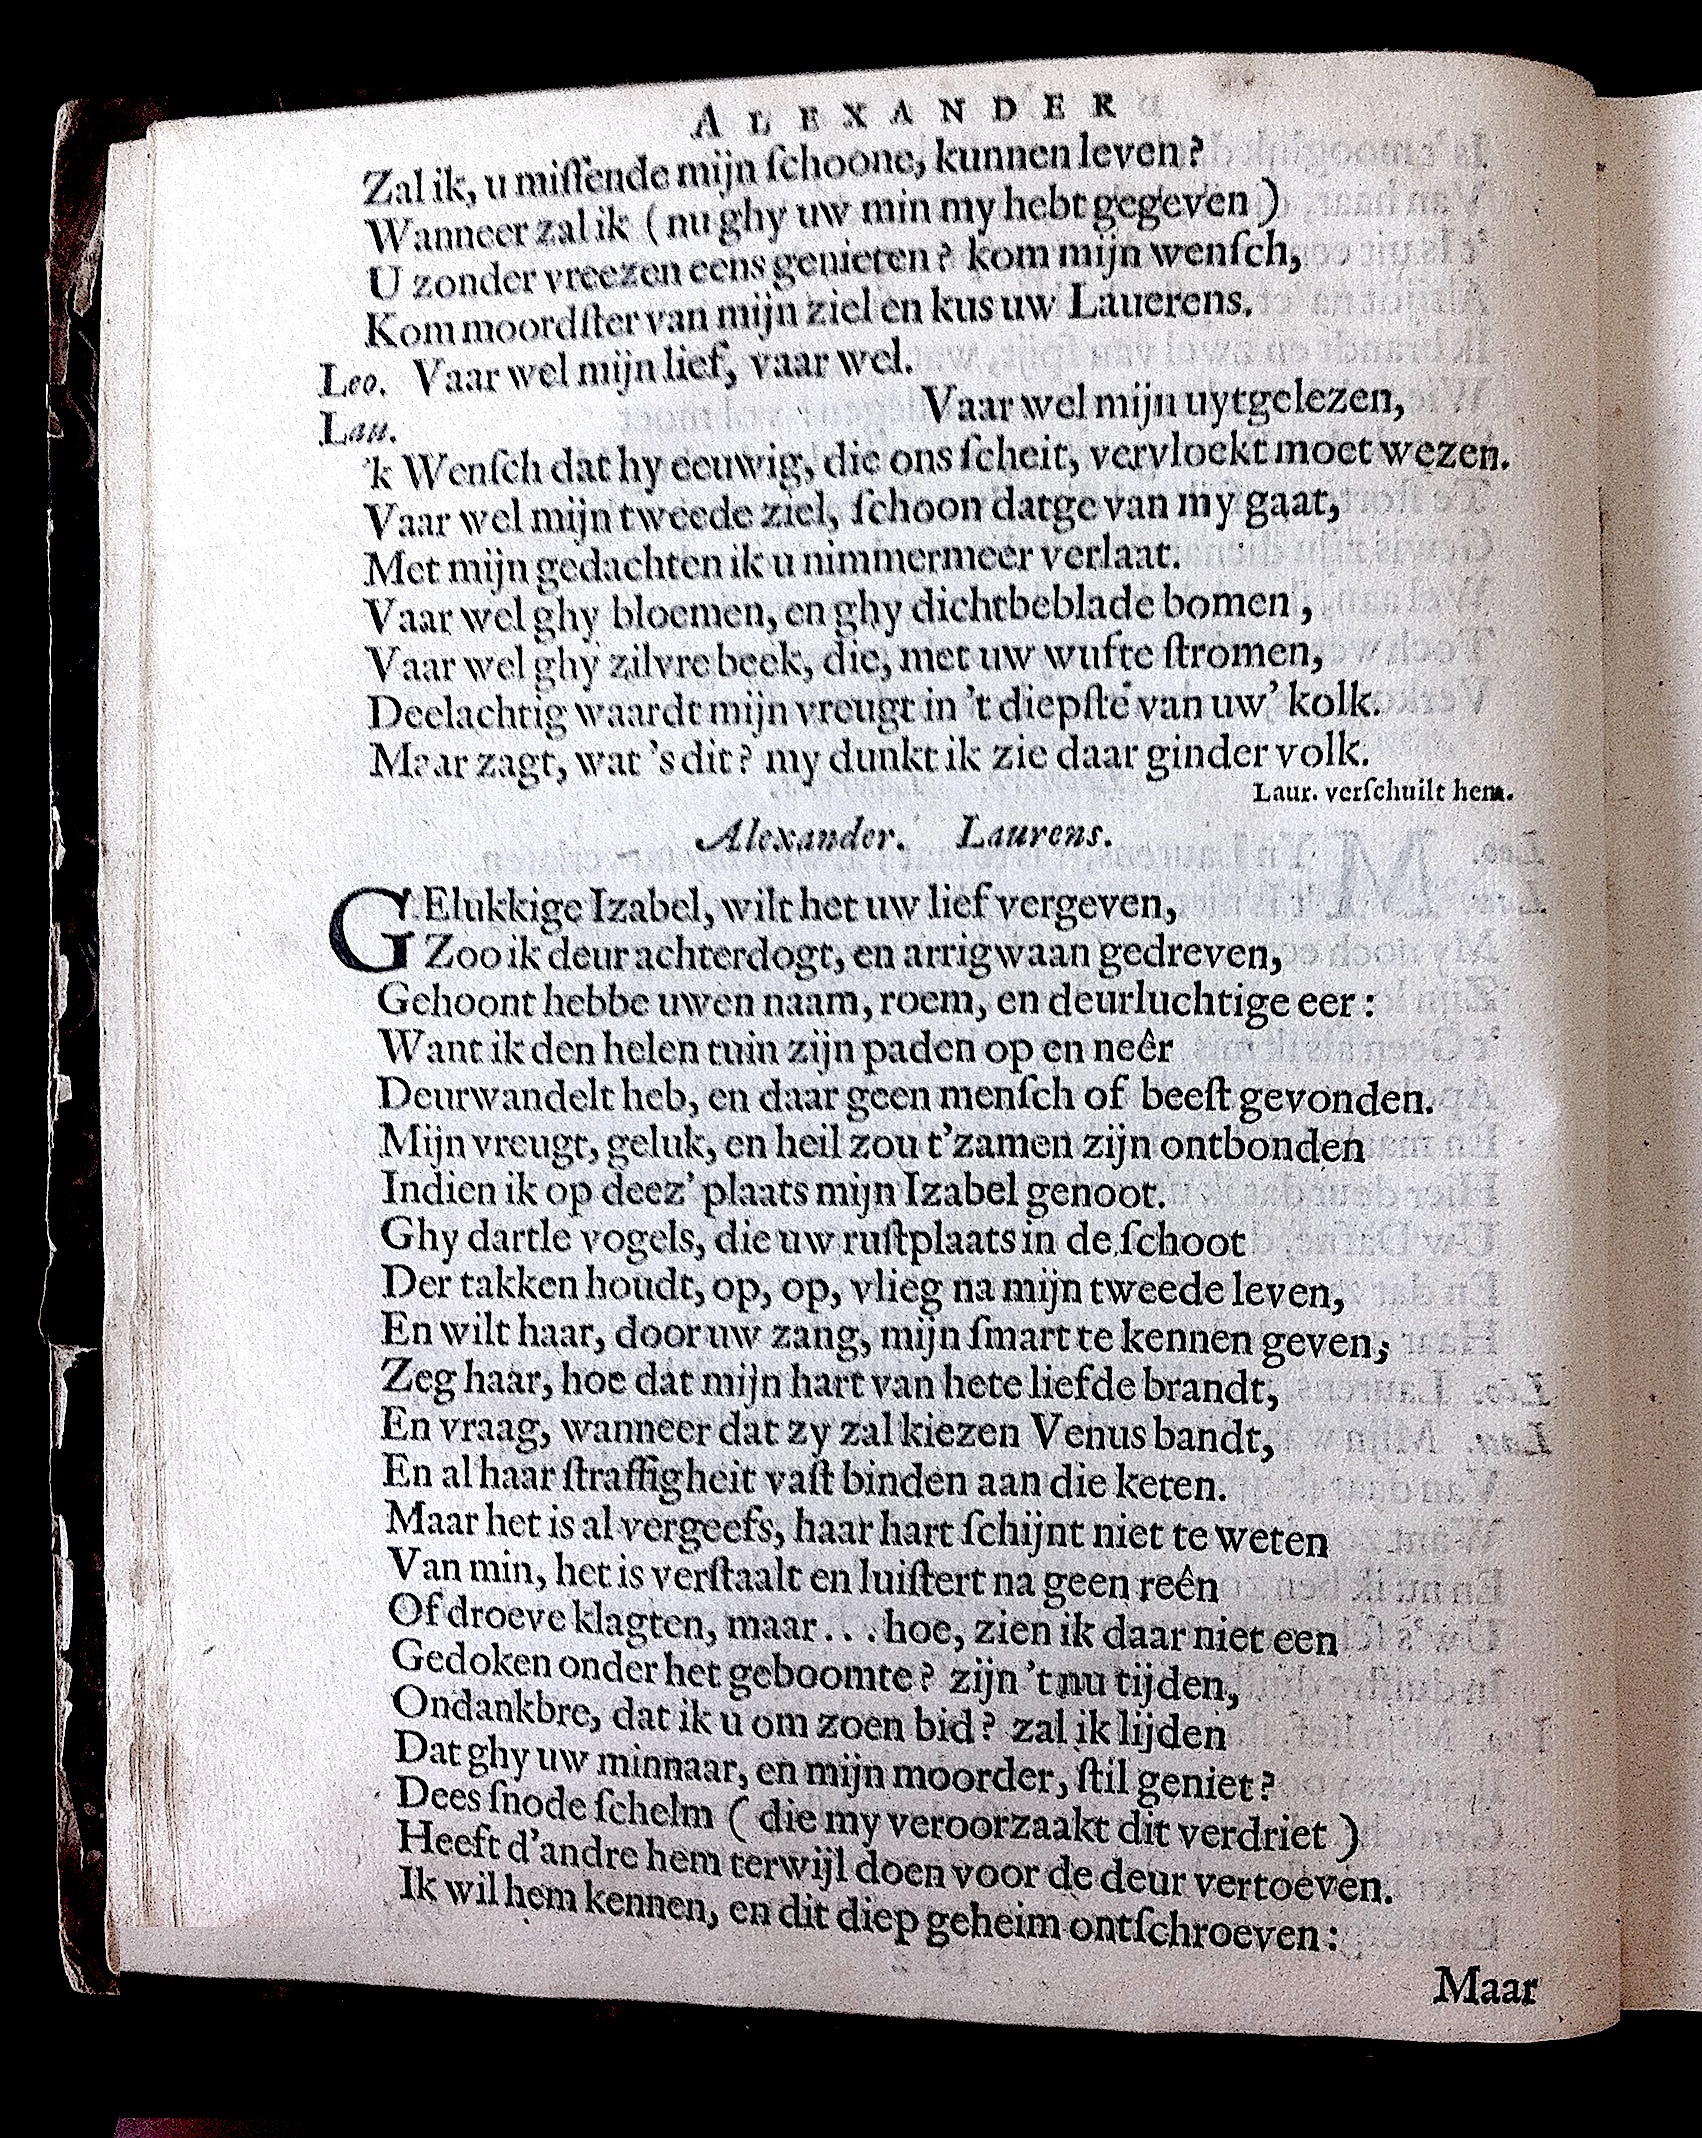 ALEXANDER
Zal ik, u miſſende mijn ſchoone, kunnen leven?
Wanneer zal ik ( nu ghy uw min my hebt gegeven )
U zonder vreezen eens genieten? kom mijn wenſch,
Kom moordſter van mijn ziel en kus uw Lauerens.
Leo. Vaar wel mijn lief, vaar wel.
Lau. Vaar wel mijn uytgelezen,
'k Wenſch dat hy eeuwig, die ons ſcheit, vervloekt moet wezen.
Vaar wel mijn tweede ziel, ſchoon datge van my gaat,
Met mijn gedachten ik u nimmermeer verlaat.
Vaar wel ghy bloemen, en ghy dichtbeblade bomen,
Vaar wel ghy zilvre beek, die, met uw wufte ſtromen,
Deelachtig waardt mijn vreugt in 't diepſte van uw' kolk.
Maar zagt, wat 's dit? my dunkt ik zie daar ginder volk.
Laur. verſchuilt hem.
Alexander. Laurens.
GElukkige Izabel, wilt het uw lief vergeven,
Zoo ik deur achterdogt, en arrigwaan gedreven,
Gehoont hebbe uwen naam, roem, en deurluchtige eer:
Want ik den helen tuin zijn paden op en neêr
Deurwandelt heb, en daar geen menſch of beeſt gevonden.
Mijn vreugt, geluk, en heil zou t'zamen zijn ontbonden
Indien ik op deez' plaats mijn Izabel genoot.
Ghy dartle vogels, die uw ruſtplaats in de ſchoot
Der takken houdt, op, op, vlieg na mijn tweede leven,
En wilt haar, door uw zang, mijn ſmart te kennen geven;
Zeg haar, hoe dat mijn hart van hete liefde brandt,
En vraag, wanneer dat zy zal kiezen Venus bandt,
En al haar ſtraffigheit vaſt binden aan die keten.
Maar het is al vergeefs, haar hart ſchijnt niet te weten
Van min, het is verſtaalt en luiſtert na geen reên
Of droeve klagten, maar... hoe, zien ik daar niet een
Gedoken onder het geboomte? zijn 't nu tijden,
Ondankbre, dat ik u om zoen bid? zal ik lijden
Dat ghy uw minnaar, en mijn moorder, ſtil geniet?
Dees ſnode ſchelm ( die my veroorzaakt dit verdriet )
Heeft d'andre hem terwijl doen voor de deur vertoeven.
Ik wil hem kennen, en dit diep geheim ontſchroeven:
Maar